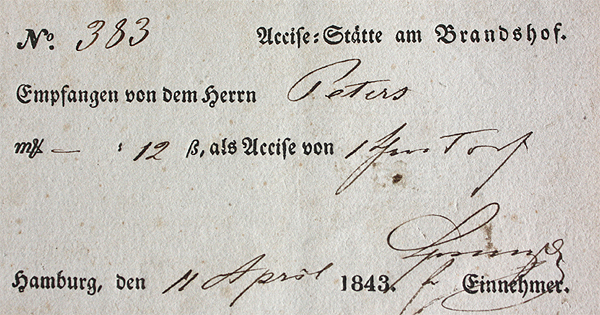 No. 383 Accise-Stätte am Brandshof.
Empfangen von dem Herrn Peters
m₰ — : 12 ß, als Accise von 1 Torf
Hamburg, den 11 April 1843. Einnehmer.